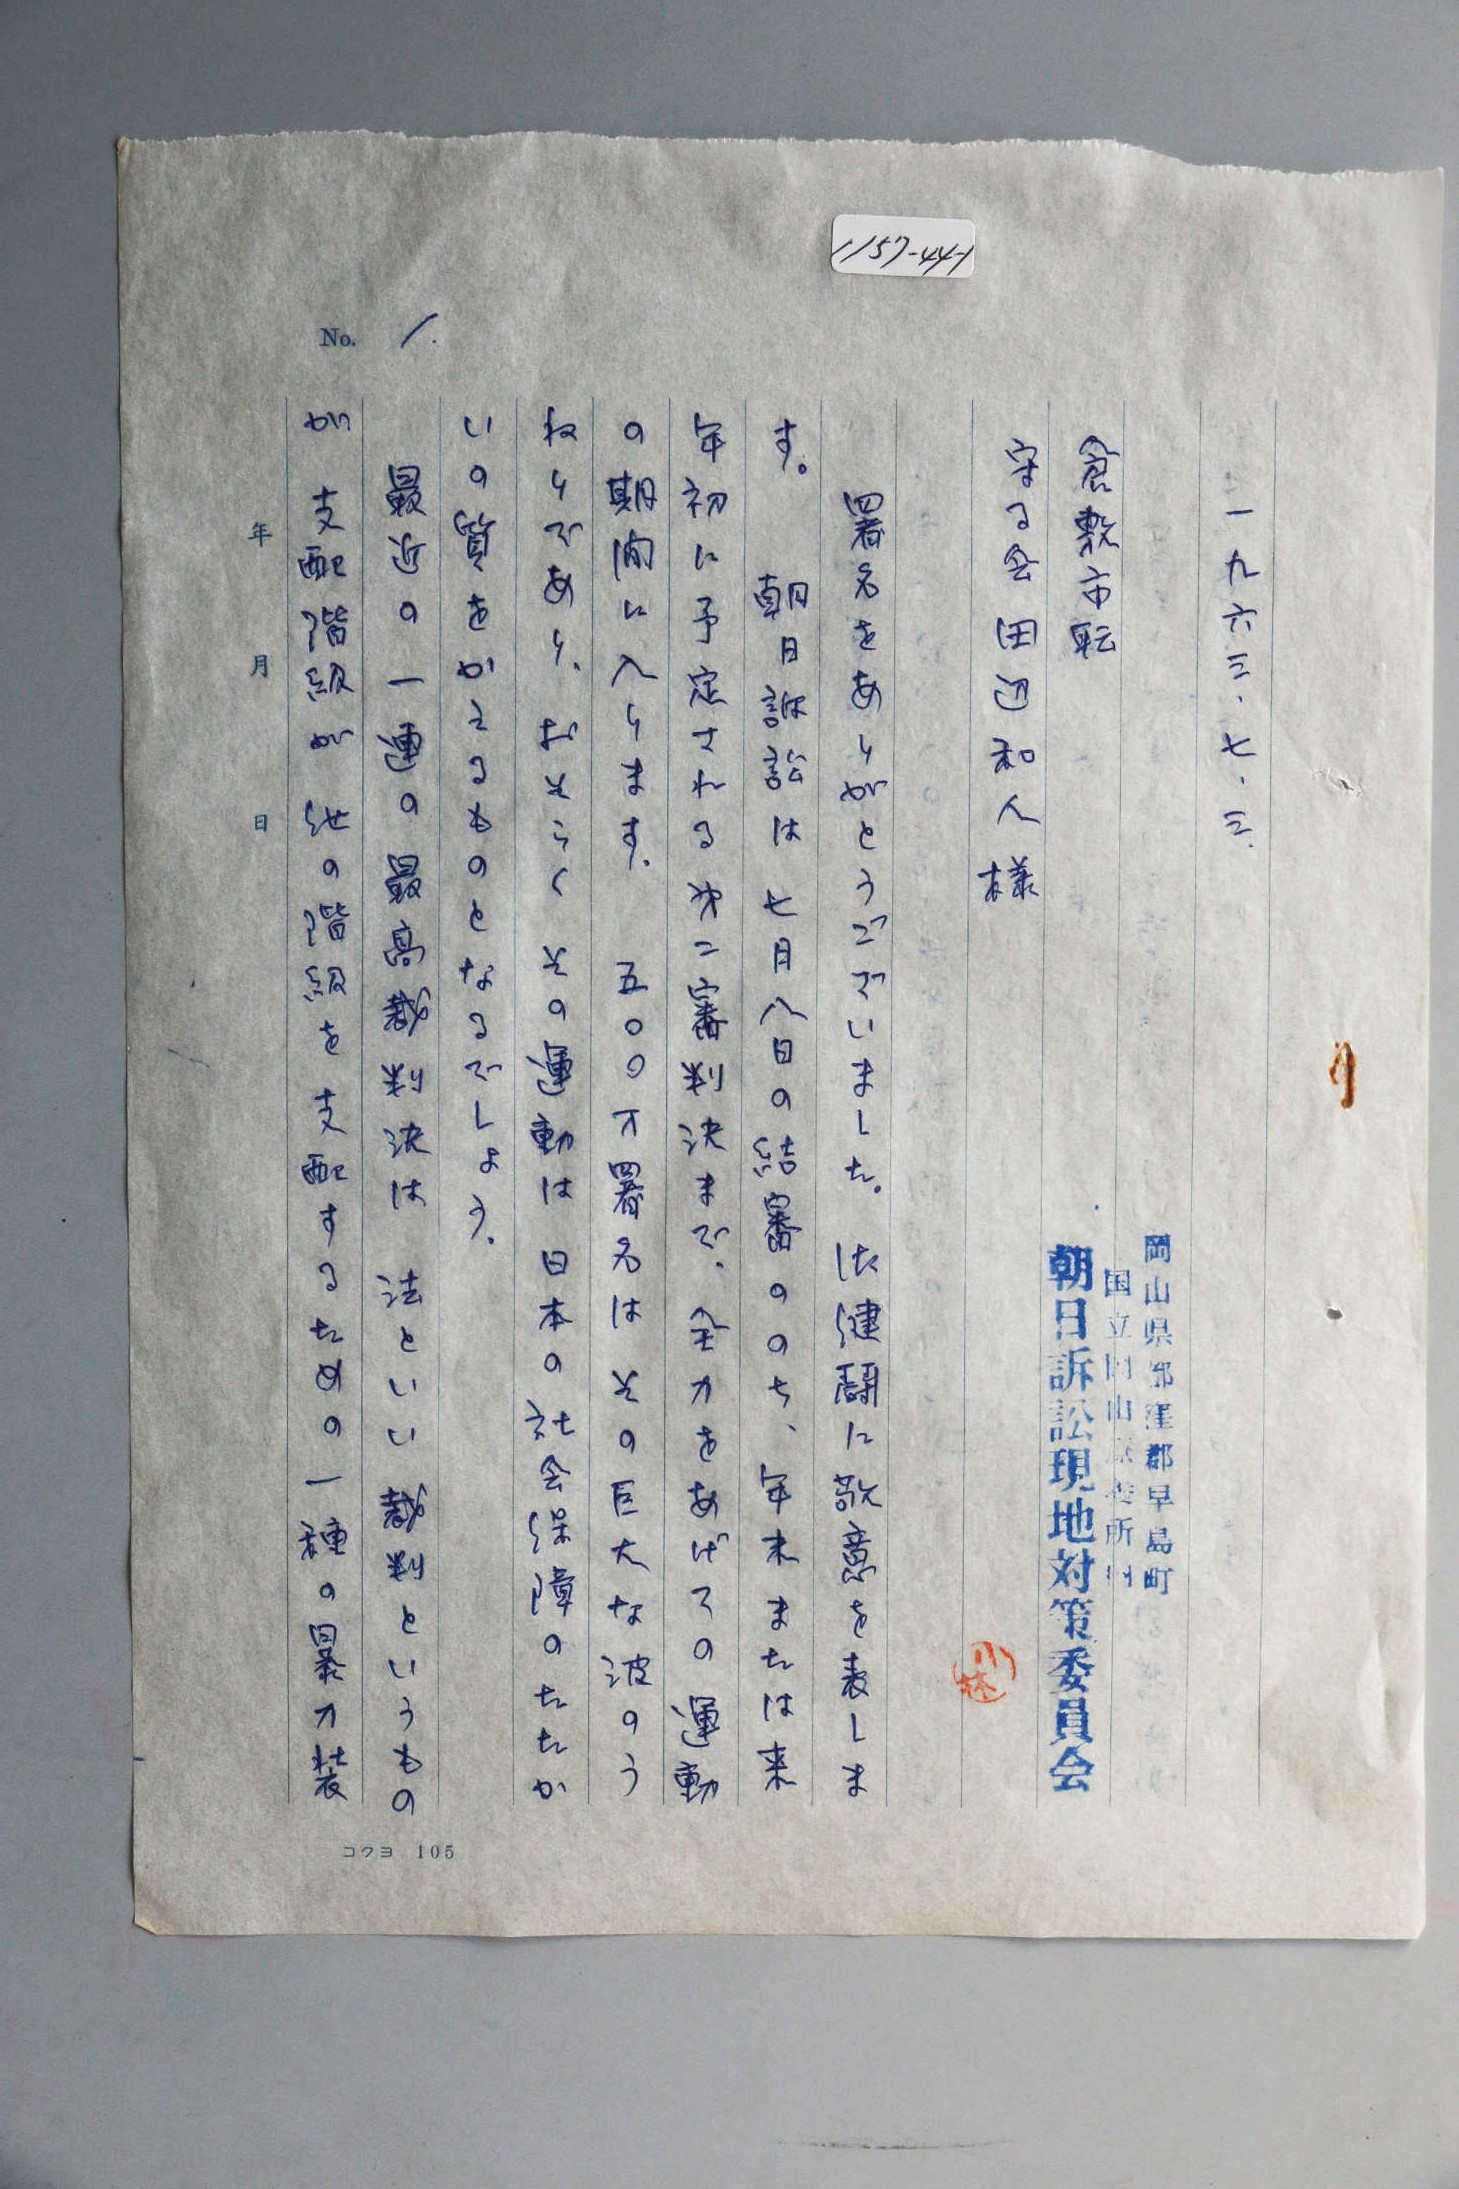 1157-44-1
No. 1.
一九六三.七.三.
岡山県都窪郡早島町
国立岡山療養所内
朝日訴訟現地対策委員会
小林
倉敷市転
守る会 田辺和人様
署名をありがとうございました。御健闘に敬意を表しま
す。 朝日訴訟は七月八日の結審ののち、年末または来
年初に予定される第二審判決まで、全力をあげての運動
の期間に入ります。 五〇〇万署名はその巨大な波のう
ねりであり、おそらくその運動は日本の社会保障のたたか
いの質をかえるものとなるでしょう。
最近の一連の最高裁判決は 法といい裁判というもの
が 支配階級が 他の階級を支配するための一種の暴力装
年 月 日
コクヨ 105